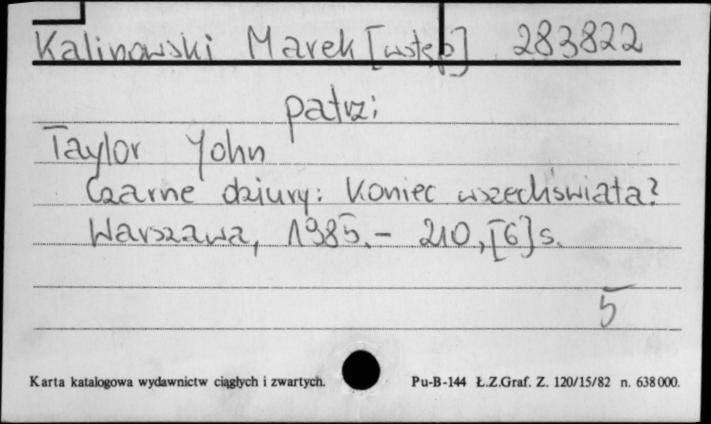 Kalinowski Marek [wstęp] 283822
patrz:
Taylor John
Czarne dziury: koniec wszechświata?
Warszawa, 1985. - 210, [6] s.
5
Karta katalogowa wydawnictw ciągłych i zwartych. Pu-B-144 Ł.Z.Graf. Z. 120/15/82 n. 638000.